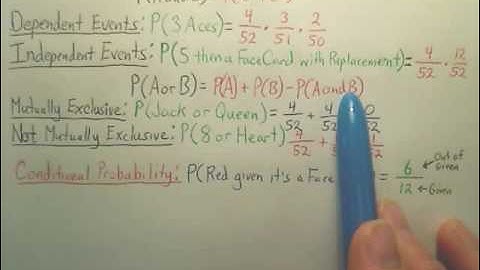 Dependent Events: P(3 Aces)= 4/52 · 3/51 · 2/50
Independent Events: P(5 then a Face Card with Replacement)= 4/52 · 12/52
P(A or B) = P(A) + P(B) - P(A and B)
Mutually Exclusive: P(Jack or Queen)= 4/52 + 4/52 0/52
Not Mutually Exclusive: P(8 or Heart) 4/52 + 1/52
Conditional Probability: P(Red given it's a Face ) = 6/12 ← Out of Given ← Given